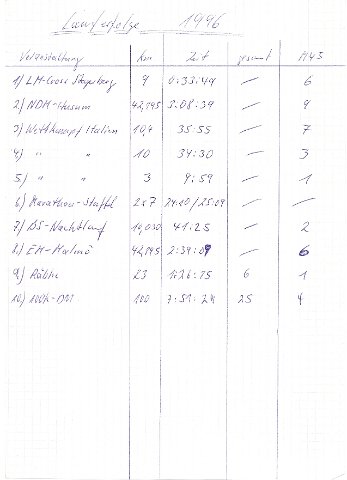 Lauferfolge 1996
Veranstaltung Km Zeit gesamt M45
1) LM-Cross 9 0:33:49 — 6
2) NDM-Husum 42,195 3:08:39 — 9
3) Wettkampf Italien 10,4 35:55 — 7
4) " " 10 34:30 — 3
5) " " 3 9:59 — 1
6) Marathon-Staffel 2x7 24:10/25:09 — —
7) DS-Nachtlauf 41:25 — 2
8) EM-Malmö 42,195 2:39:09 — 6
9) 23 1:26:15 6 1
10) 100k-DM 100 7:51:24 25 4